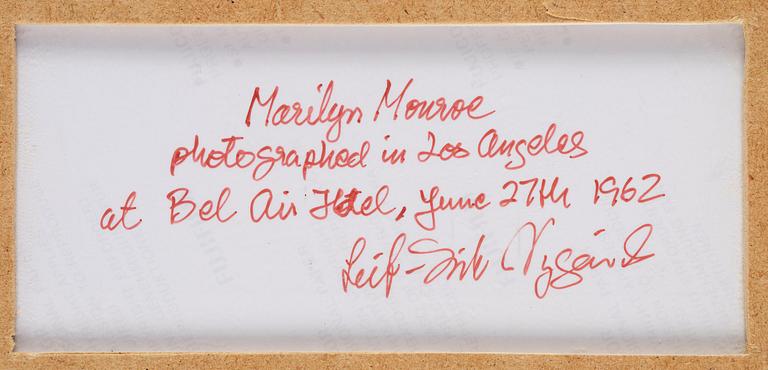 Marilyn Monroe
photographed in Los Angeles
at Bel Air Hotel, June 27th 1962
Leif-Erik Nygårds